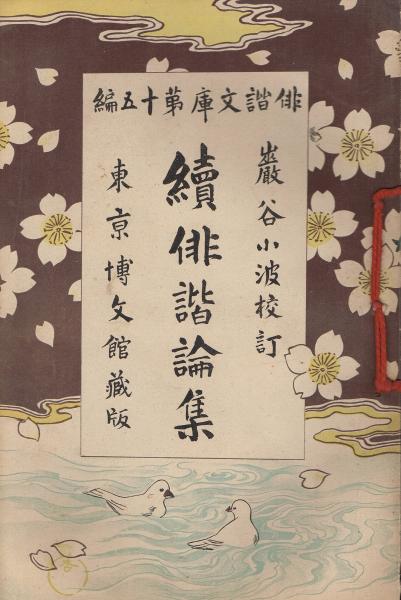 俳諧文庫第十五編
巖谷小波校訂
續俳諧論集
東京博文館藏版